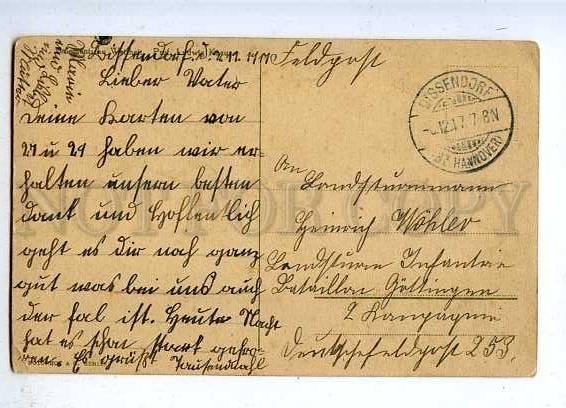 Bissendorf. d. 2.11. 1917
Lieber Vater
Deine Karten von
27 u 29 haben wir er-
halten unsern besten
dank und Hoffentlich
geht es dir noch ganz
gut was bei uns auch
der fal ist. Heute Nacht
hat es schon stark gefro-
Es grüßt Tausendmahl
Feldpost
BISSENDORF
12.17. 7-8N
HANNOVER)
An
Landsturmmann
Heinrich Wöhler
Landsturm Infantrie
Bataillon Göttingen
2 Kompagnie
Deutschefeldpost 253.
NOT FOR COPY